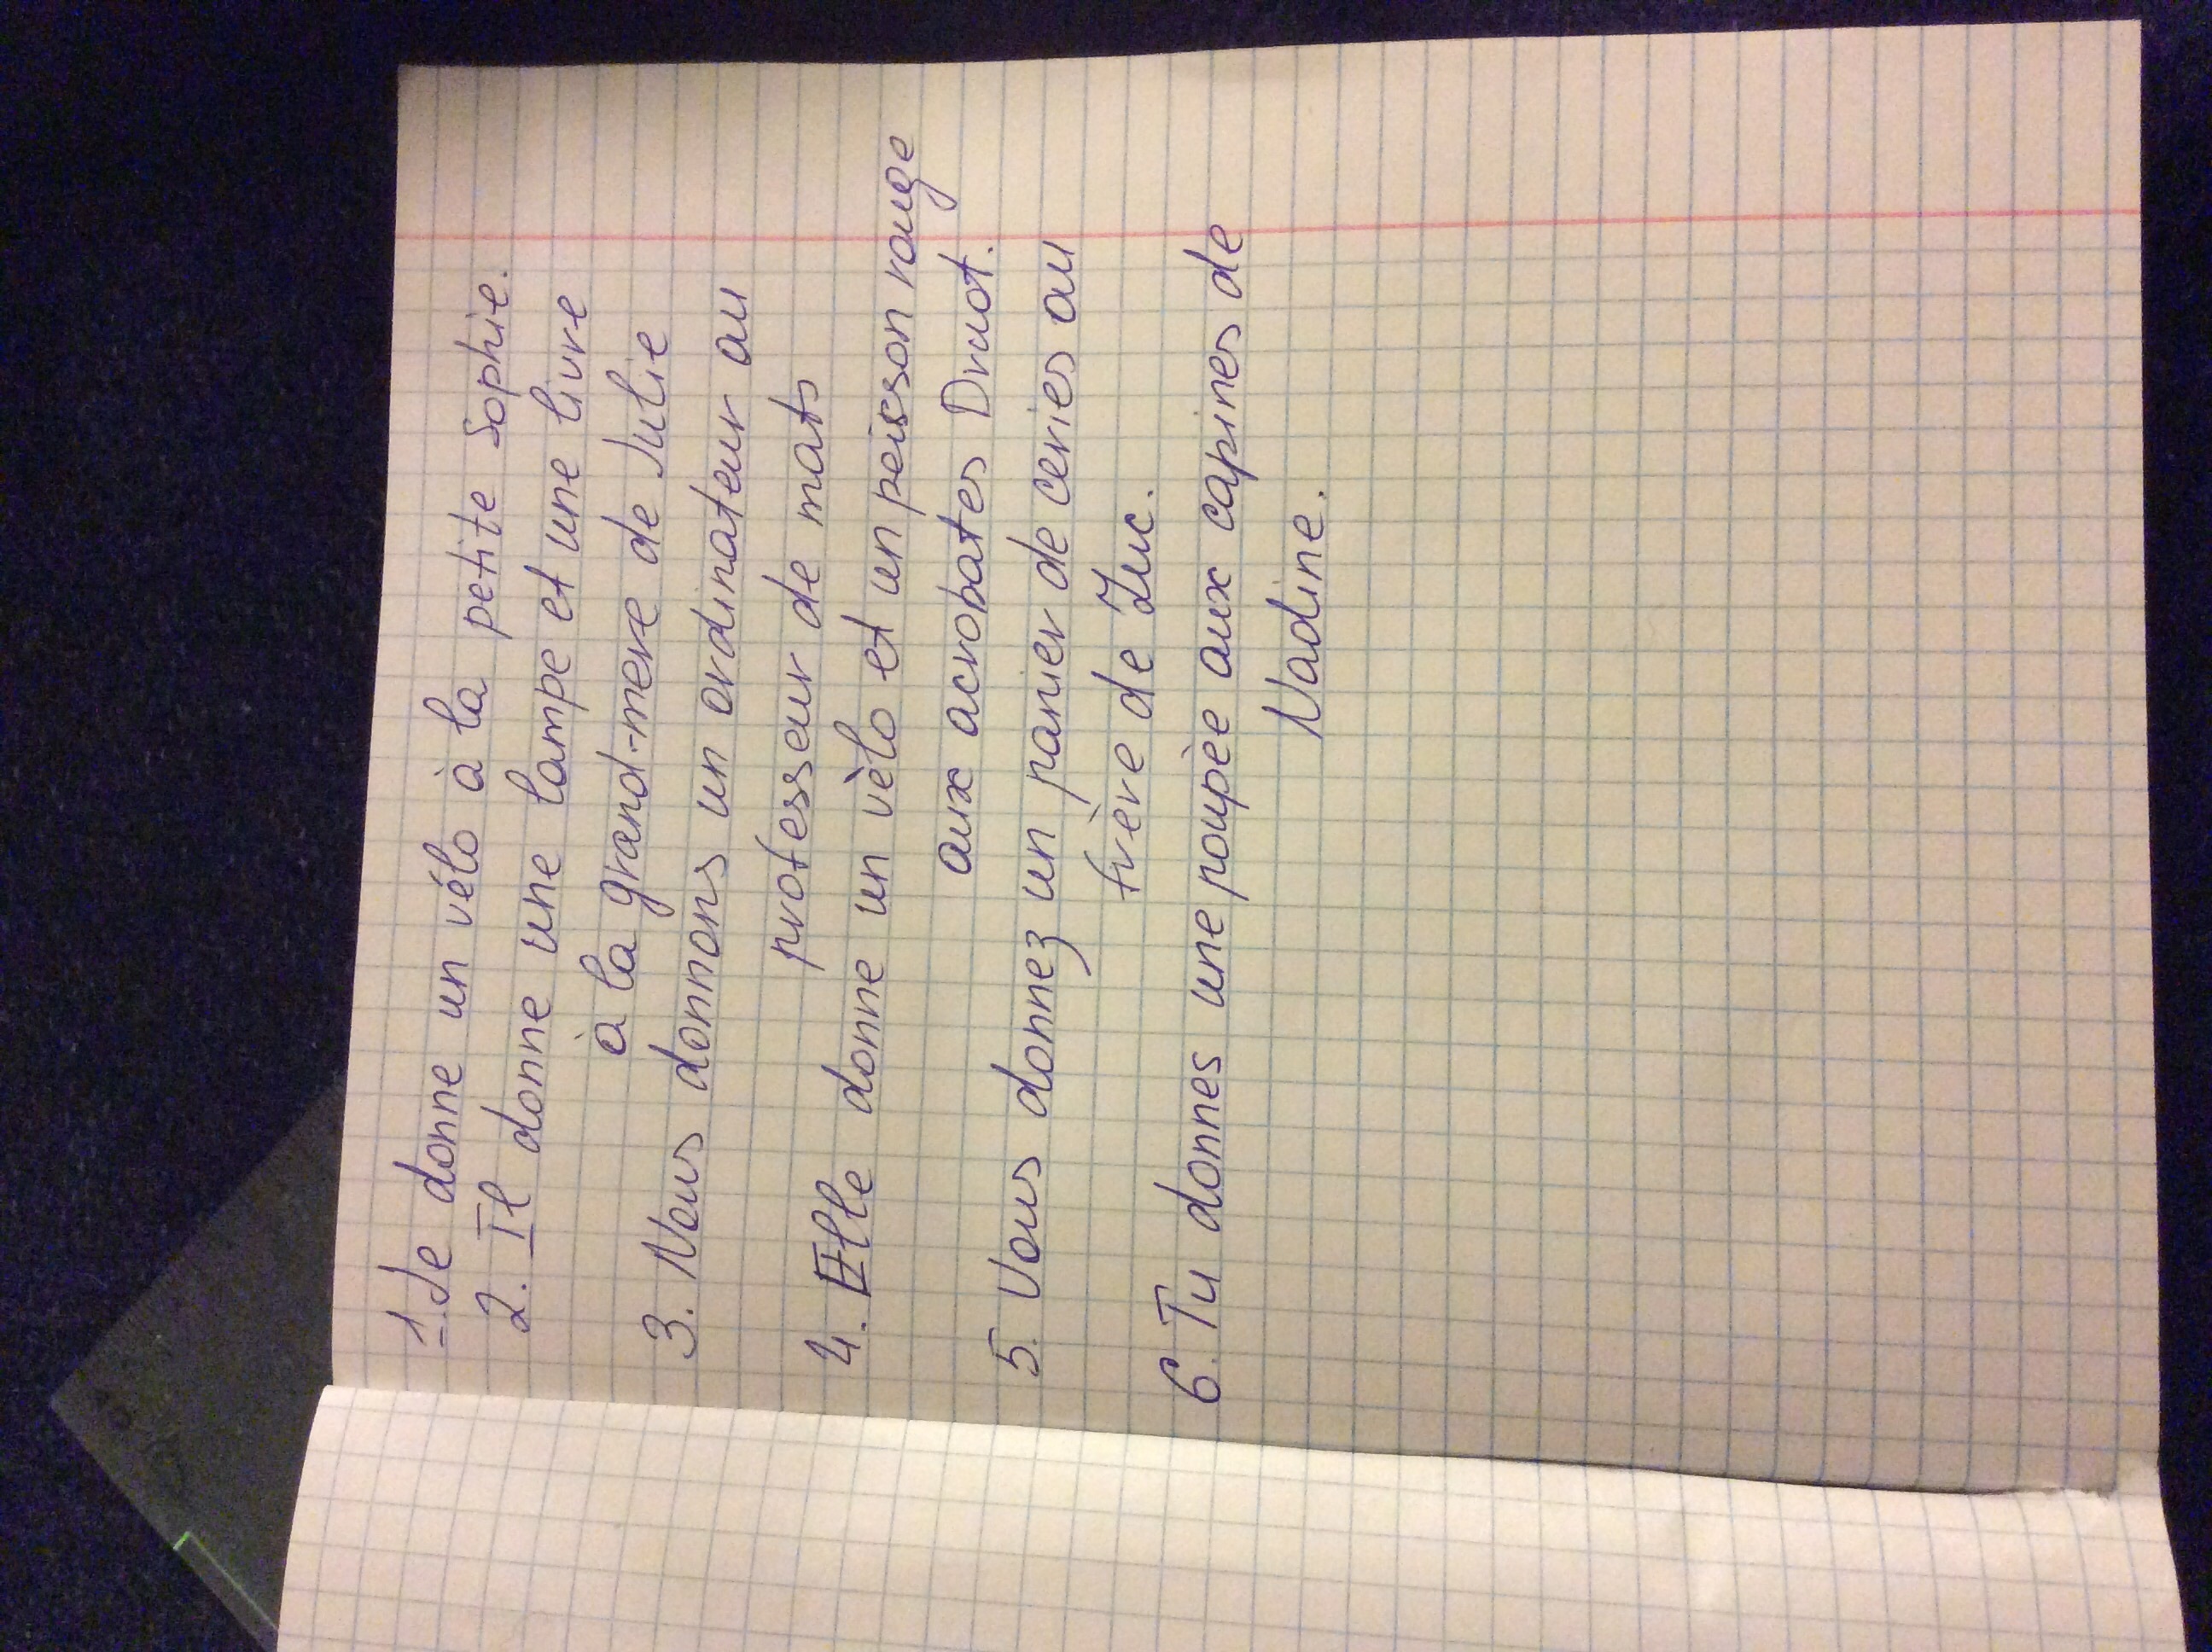 1. Je donne un vélo à la petite Sophie.
2. Il donne une lampe et une livre
à la grand-mere de Julie
3. Nous donnons un ordinateur au
professeur de mats
4. Elle donne un vèlo et un peisson rouge
aux acrobates Druot.
5. Vous donnez un panier de ceries au
frère de Luc.
6. Tu donnes une poupèe aux capines de
Nadine.